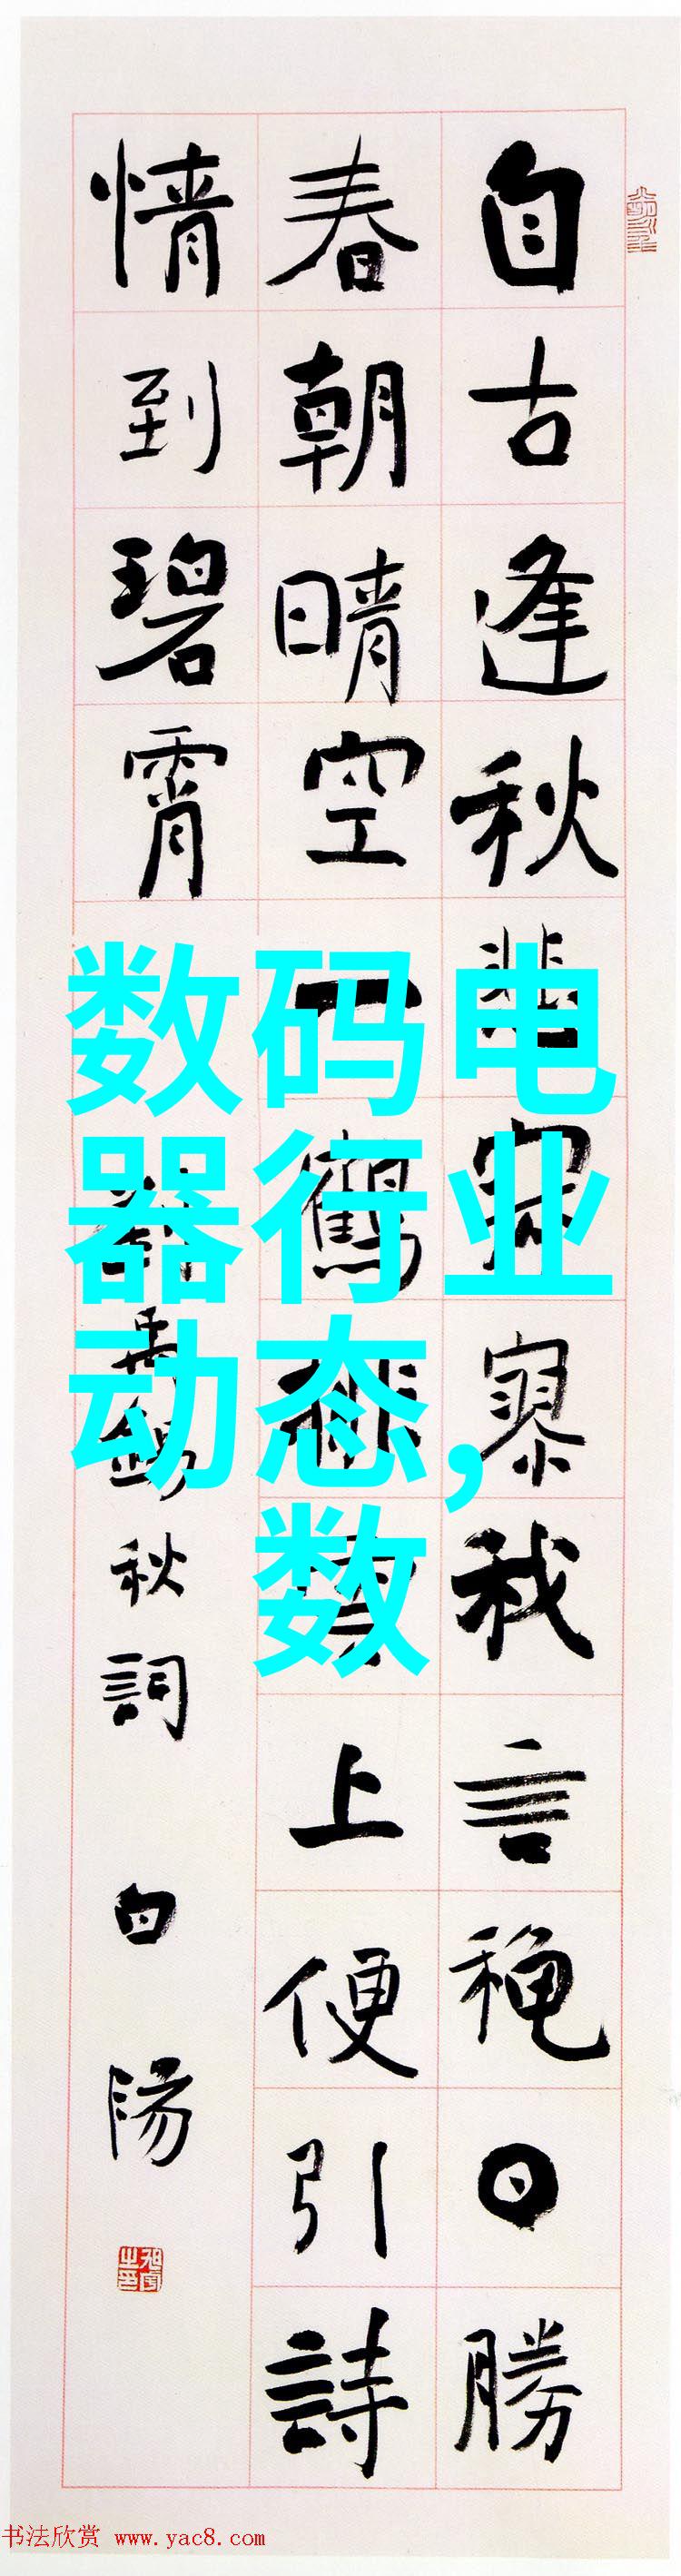 自古逢秋悲寂寥我言穐日勝
春朝晴空一鶴排雲上便引詩
情到碧霄
劉禹錫秋詞
白陽
数码电
器行业
动态,
数
书法欣赏 www.yac8.com